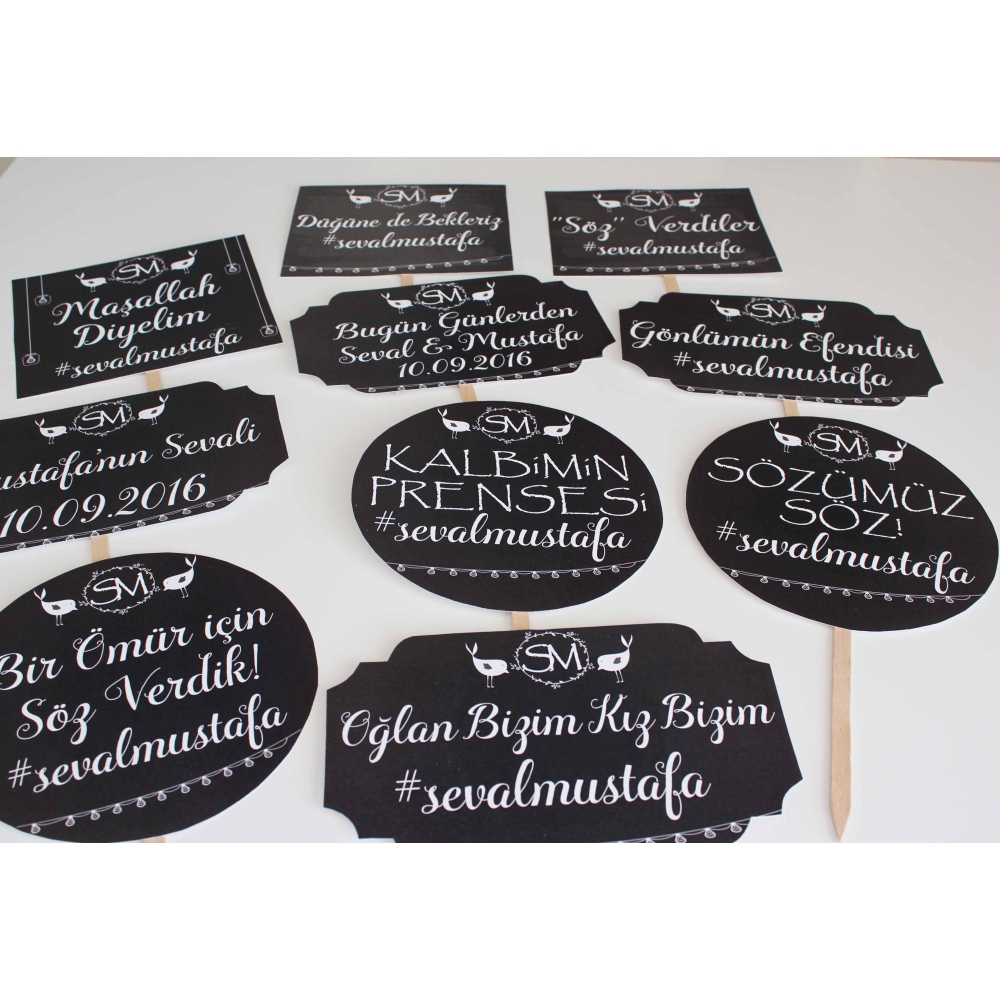 SM
Düğüne de Bekleriz
#sevalmustafa
SM
"Söz" Verdiler
#sevalmustafa
SM
Maşallah
Diyelim
#sevalmustafa
SM
Bugün Günlerden
Seval & Mustafa
10.09.2016
SM
Gönlümün Efendisi
#sevalmustafa
SM
ustafa'nın Sevali
10.09.2016
SM
KALBiMiN
PRENSESi
#sevalmustafa
SM
SÖZÜMÜZ
SÖZ!
#sevalmustafa
SM
Bir Ömür için
Söz Verdik!
#sevalmustafa
SM
Oğlan Bizim Kız Bizim
#sevalmustafa